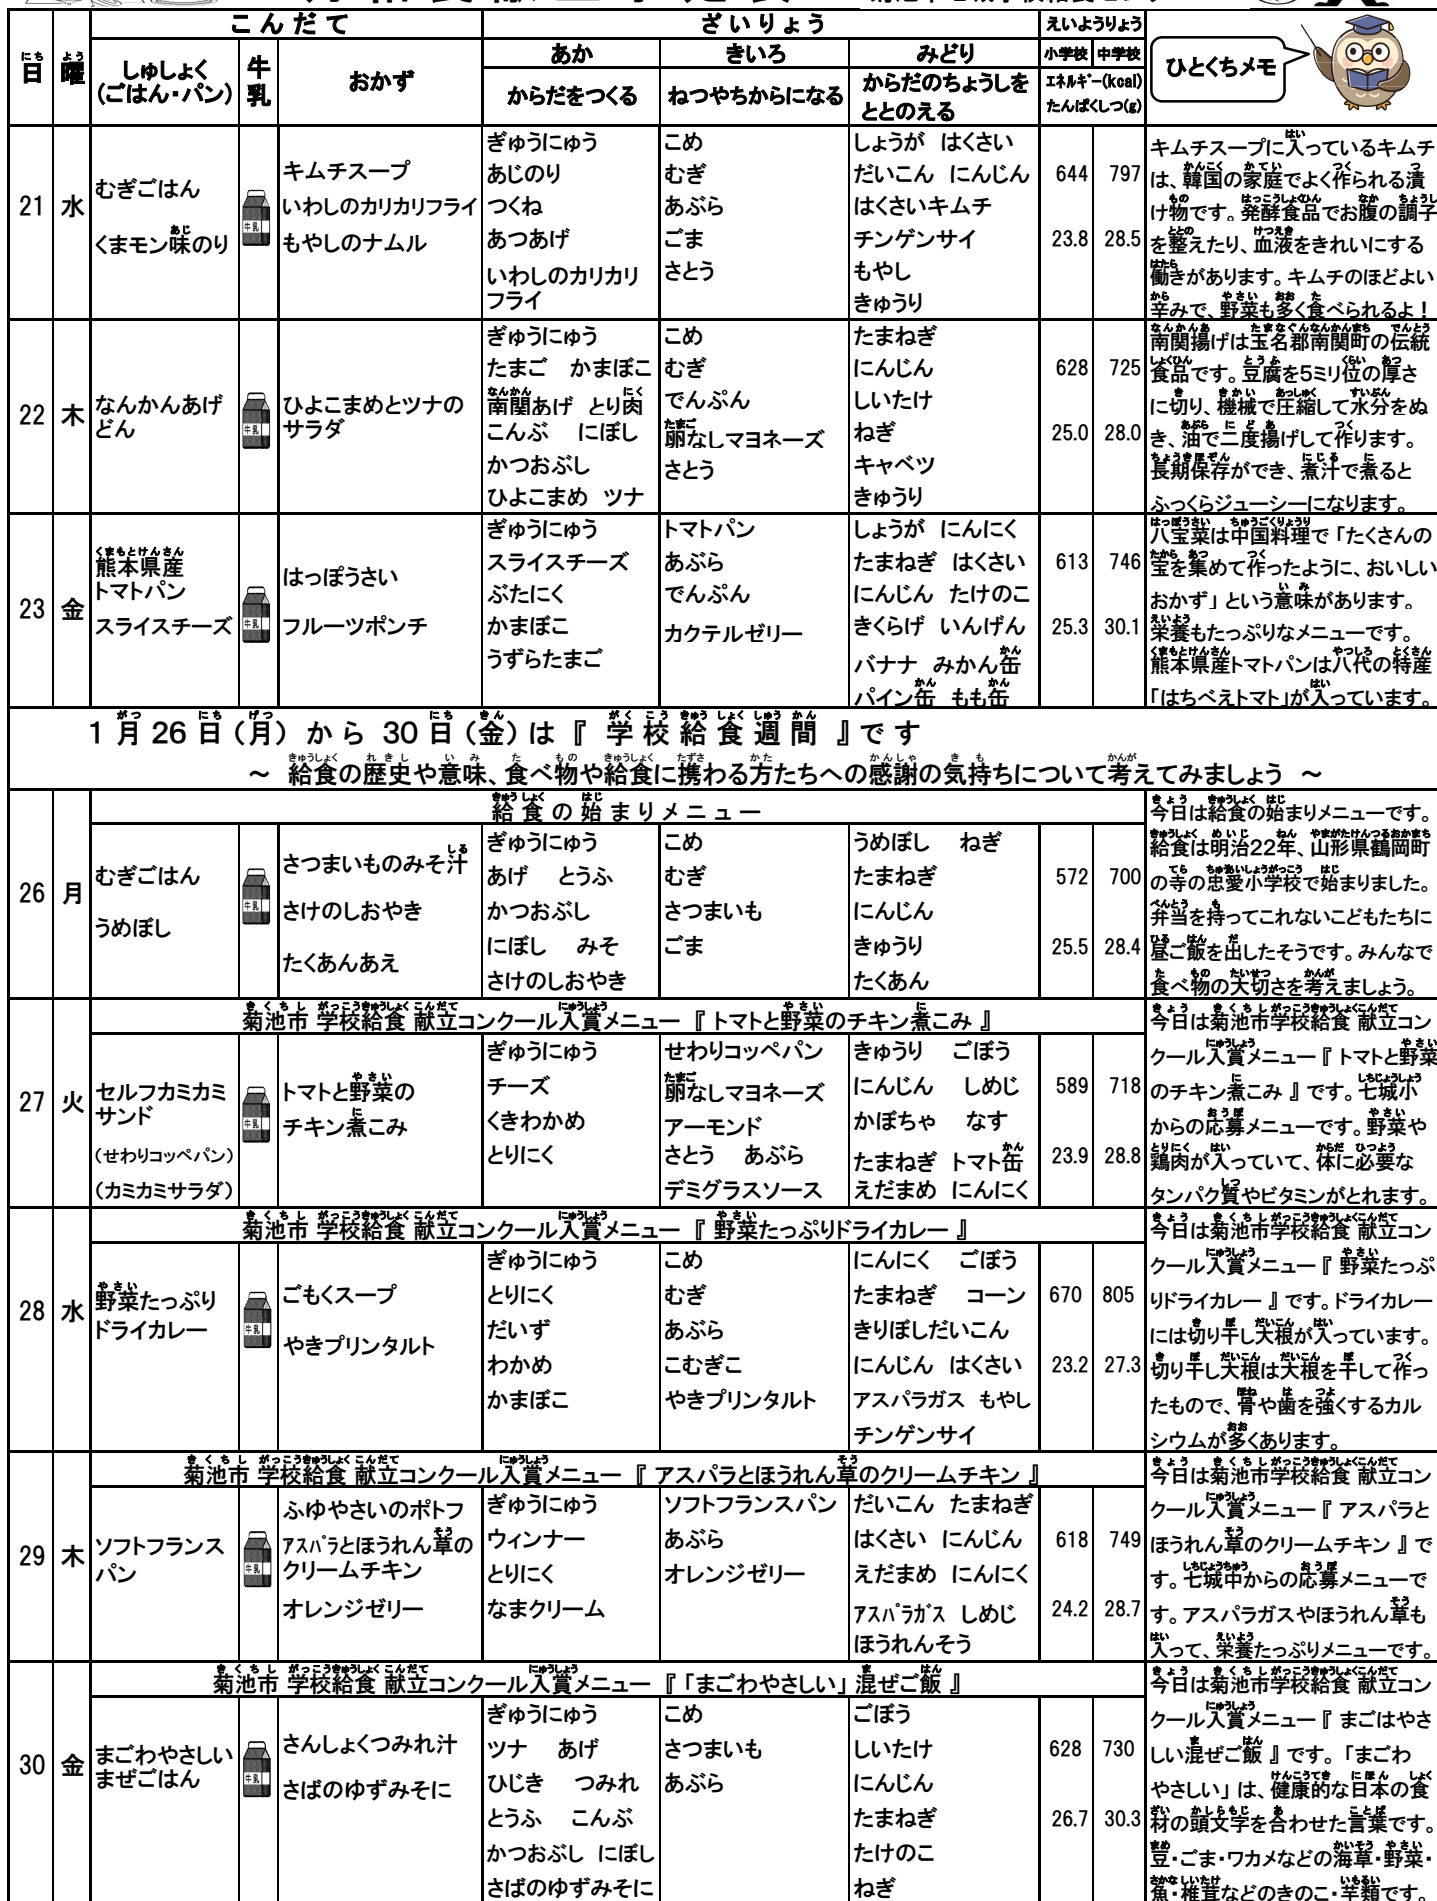 こんだて
ざいりょう
えいようりょう
日
曜
しゅしょく
(ごはん・パン)
牛乳
おかず
あか
きいろ
みどり
小学校 中学校
からだをつくる
ねつやちからになる
からだのちょうしを
ととのえる
エネルギー(kcal)
たんぱくしつ(g)
ひとくちメモ
21 水
むぎごはん
くまモン味のり
牛乳
キムチスープ
いわしのカリカリフライ
もやしのナムル
ぎゅうにゅう
あじのり
つくね
あつあげ
いわしのカリカリ
フライ
こめ
むぎ
あぶら
ごま
さとう
しょうが はくさい
だいこん にんじん
はくさいキムチ
チンゲンサイ
もやし
きゅうり
644 797
23.8 28.5
キムチスープに入っているキムチ
は、韓国の家庭でよく作られる漬
け物です。発酵食品でお腹の調子
を整えたり、血液をきれいにする
働きがあります。キムチのほどよい
辛みで、野菜も多く食べられるよ！
22 木
なんかんあげ
どん
牛乳
ひよこまめとツナの
サラダ
ぎゅうにゅう
たまご かまぼこ
南関あげ とり肉
こんぶ にぼし
かつおぶし
ひよこまめ ツナ
こめ
むぎ
でんぷん
卵なしマヨネーズ
さとう
たまねぎ
にんじん
しいたけ
ねぎ
キャベツ
きゅうり
628 725
25.0 28.0
南関揚げは玉名郡南関町の伝統
食品です。豆腐を5ミリ位の厚さ
に切り、機械で圧縮して水分をぬ
き、油で二度揚げして作ります。
長期保存ができ、煮汁で煮ると
ふっくらジューシーになります。
23 金
熊本県産
トマトパン
スライスチーズ
牛乳
はっぽうさい
フルーツポンチ
ぎゅうにゅう
スライスチーズ
ぶたにく
かまぼこ
うずらたまご
トマトパン
あぶら
でんぷん
カクテルゼリー
しょうが にんにく
たまねぎ はくさい
にんじん たけのこ
きくらげ いんげん
バナナ みかん缶
パイン缶 もも缶
613 746
25.3 30.1
八宝菜は中国料理で「たくさんの
宝を集めて作ったように、おいしい
おかず」という意味があります。
栄養もたっぷりなメニューです。
熊本県産トマトパンは八代の特産
「はちべえトマト」が入っています。
1月26日(月)から30日(金)は『学校給食週間』です
～ 給食の歴史や意味、食べ物や給食に携わる方たちへの感謝の気持ちについて考えてみましょう ～
給食の始まりメニュー
26 月
むぎごはん
うめぼし
牛乳
さつまいものみそ汁
さけのしおやき
たくあんあえ
ぎゅうにゅう
あげ とうふ
かつおぶし
にぼし みそ
さけのしおやき
こめ
むぎ
さつまいも
ごま
うめぼし ねぎ
たまねぎ
にんじん
きゅうり
たくあん
572 700
25.5 28.4
今日は給食の始まりメニューです。
給食は明治22年、山形県鶴岡町
の寺の忠愛小学校で始まりました。
弁当を持ってこれないこどもたちに
昼ご飯を出したそうです。みんなで
食べ物の大切さを考えましょう。
菊池市 学校給食 献立コンクール入賞メニュー 『 トマトと野菜のチキン煮こみ 』
27 火
セルフカミカミ
サンド
(せわりコッペパン)
(カミカミサラダ)
牛乳
トマトと野菜の
チキン煮こみ
ぎゅうにゅう
チーズ
くきわかめ
とりにく
せわりコッペパン
卵なしマヨネーズ
アーモンド
さとう あぶら
デミグラスソース
きゅうり ごぼう
にんじん しめじ
かぼちゃ なす
たまねぎ トマト缶
えだまめ にんにく
589 718
23.9 28.8
今日は菊池市学校給食 献立コン
クール入賞メニュー『 トマトと野菜
のチキン煮こみ 』です。七城小
からの応募メニューです。野菜や
鶏肉が入っていて、体に必要な
タンパク質やビタミンがとれます。
菊池市 学校給食 献立コンクール入賞メニュー 『 野菜たっぷりドライカレー 』
28 水
野菜たっぷり
ドライカレー
牛乳
ごもくスープ
やきプリンタルト
ぎゅうにゅう
とりにく
だいず
わかめ
かまぼこ
こめ
むぎ
あぶら
こむぎこ
やきプリンタルト
にんにく ごぼう
たまねぎ コーン
きりぼしだいこん
にんじん はくさい
アスパラガス もやし
チンゲンサイ
670 805
23.2 27.3
今日は菊池市学校給食 献立コン
クール入賞メニュー『 野菜たっぷ
りドライカレー 』です。ドライカレー
には切り干し大根が入っています。
切り干し大根は大根を干して作っ
たもので、骨や歯を強くするカル
シウムが多くあります。
菊池市 学校給食 献立コンクール入賞メニュー 『 アスパラとほうれん草のクリームチキン 』
29 木
ソフトフランス
パン
牛乳
ふゆやさいのポトフ
アスパラとほうれん草の
クリームチキン
オレンジゼリー
ぎゅうにゅう
ウィンナー
とりにく
なまクリーム
ソフトフランスパン
あぶら
オレンジゼリー
だいこん たまねぎ
はくさい にんじん
えだまめ にんにく
アスパラガス しめじ
ほうれんそう
618 749
24.2 28.7
今日は菊池市学校給食 献立コン
クール入賞メニュー『 アスパラと
ほうれん草のクリームチキン 』で
す。七城中からの応募メニューで
す。アスパラガスやほうれん草も
入って、栄養たっぷりメニューです。
菊池市 学校給食 献立コンクール入賞メニュー 『「まごわやさしい」混ぜご飯 』
30 金
まごわやさしい
まぜごはん
牛乳
さんしょくつみれ汁
さばのゆずみそに
ぎゅうにゅう
ツナ あげ
ひじき つみれ
とうふ こんぶ
かつおぶし にぼし
さばのゆずみそに
こめ
さつまいも
あぶら
ごぼう
しいたけ
にんじん
たまねぎ
たけのこ
ねぎ
628 730
26.7 30.3
今日は菊池市学校給食 献立コン
クール入賞メニュー『 まごはやさ
しい混ぜご飯 』です。「まごわ
やさしい」は、健康的な日本の食
材の頭文字を合わせた言葉です。
豆・ごま・ワカメなどの海草・野菜・
魚・椎茸などのきのこ・芋類です。